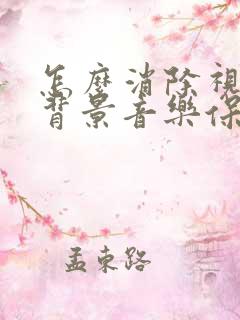 怎麼消除視
背景音樂保
孟東路